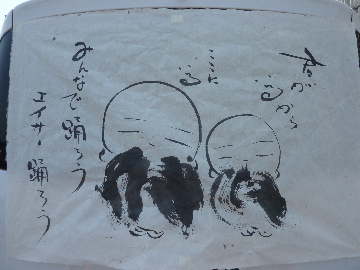 君が
いるから
ここに
いる
みんなで踊ろう
エイサー踊ろう